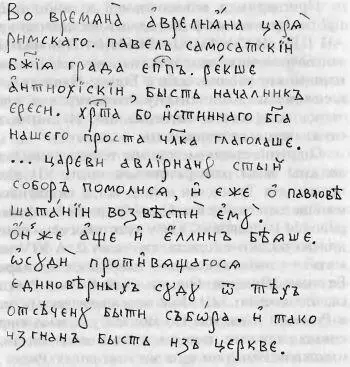 Во времѧна̀ а҆врелиа́на царѧ̀
ри́мскаго. павелъ самосатскїй
бж҃їѧ града є҆пⷭ҇пъ. ре́кше
а҆нтиохі́скїй, бысть нача́лникъ
є҆реси. хрⷭ҇та̀ бо и҆́стиннаго бг҃а
нашего проста чл҃ка глаголаше.
... цареви авлїрнану ст҃ый
соборъ помолисѧ, и҆ є҆же о҆ павловѣ
шата́нїи возвѣсти є҆мꙋ̀.
ѻ҆́нже а҆ще и҆ є҆́ллинъ бѣѧше.
ѡ҆сꙋдѝ проти́вѧщагосѧ
единовѣ́рныхъ сꙋдꙋ̀ ѿ тѣхъ
отсѣчену быти събо́ра. и҆ тако
изгнанъ бысть изъ церкве.